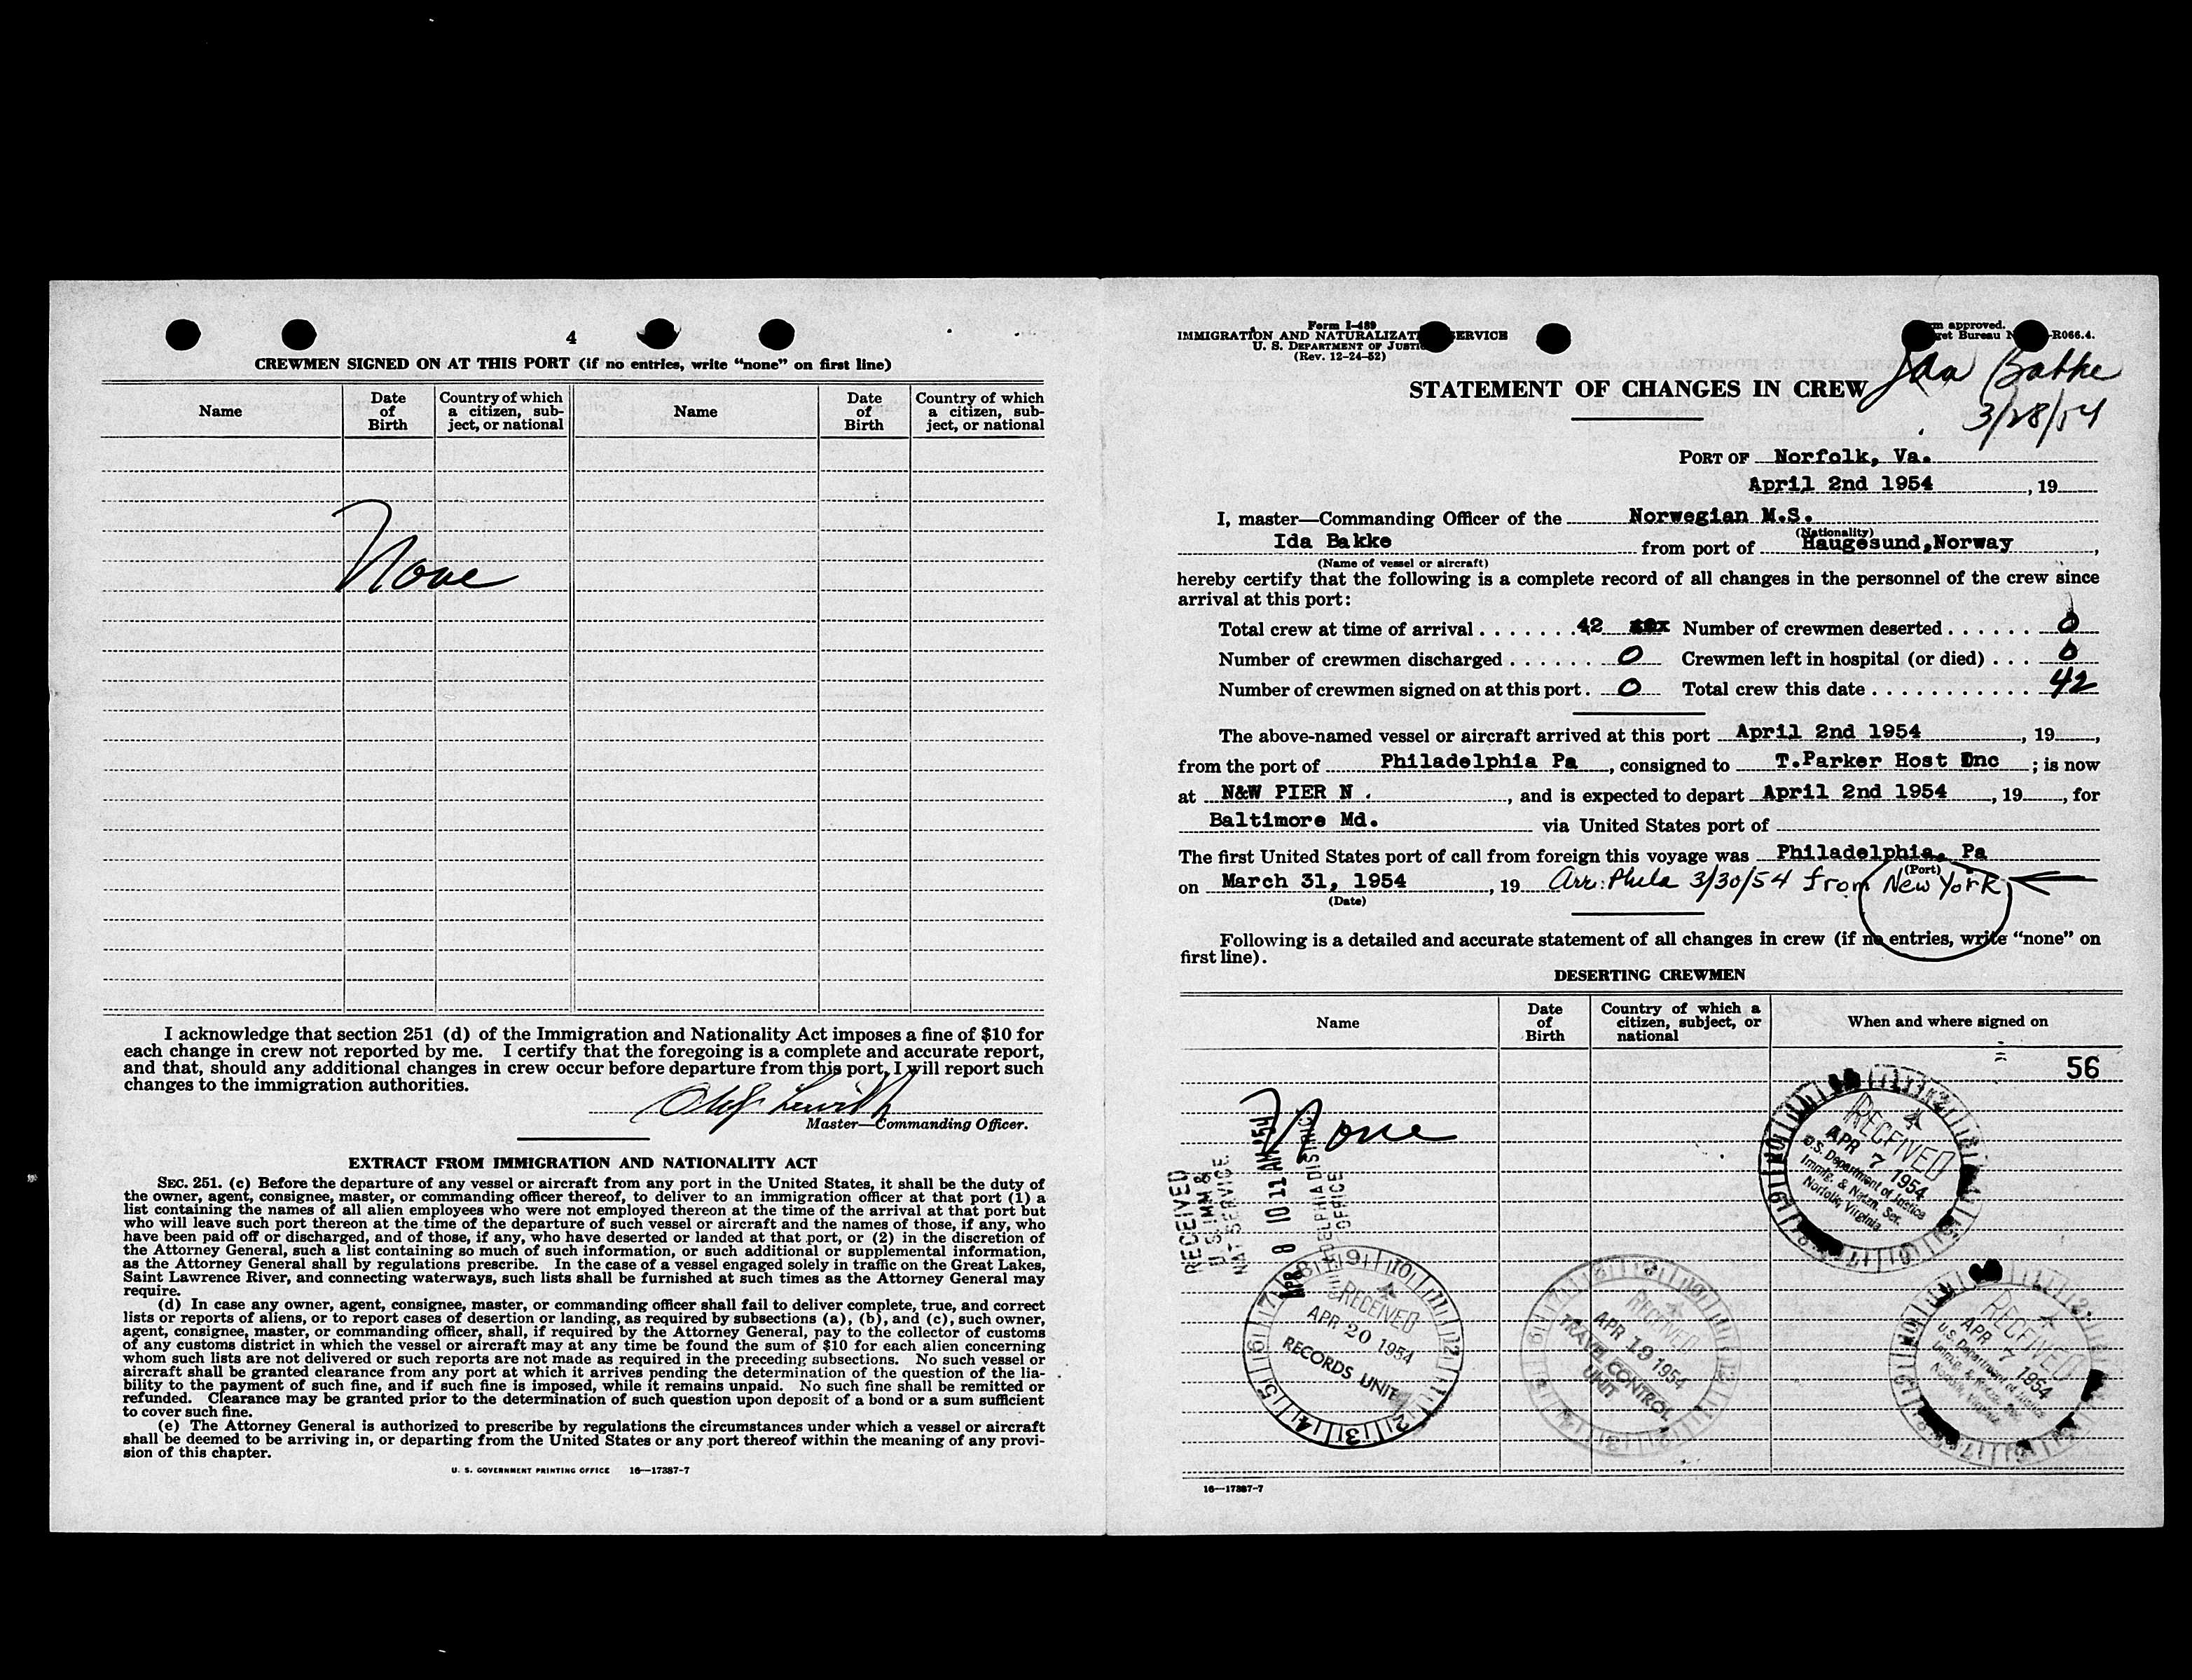 4
CREWMEN SIGNED ON AT THIS PORT (if no entries, write “none” on first line)
Name
Date of Birth
Country of which a citizen, sub-ject, or national
Name
Date of Birth
Country of which a citizen, sub-ject, or national
None
I acknowledge that section 251 (d) of the Immigration and Nationality Act imposes a fine of $10 for
each change in crew not reported by me. I certify that the foregoing is a complete and accurate report,
and that, should any additional changes in crew occur before departure from this port, I will report such
changes to the immigration authorities.
Master—Commanding Officer.
EXTRACT FROM IMMIGRATION AND NATIONALITY ACT
SEC. 251. (c) Before the departure of any vessel or aircraft from any port in the United States, it shall be the duty of
the owner, agent, consignee, master, or commanding officer thereof, to deliver to an immigration officer at that port (1) a
list containing the names of all alien employees who were not employed thereon at the time of the arrival at that port but
who will leave such port thereon at the time of the departure of such vessel or aircraft and the names of those, if any, who
have been paid off or discharged, and of those, if any, who have deserted or landed at that port, or (2) in the discretion of
the Attorney General, such a list containing so much of such information, or such additional or supplemental information,
as the Attorney General shall by regulations prescribe. In the case of a vessel engaged solely in traffic on the Great Lakes,
Saint Lawrence River, and connecting waterways, such lists shall be furnished at such times as the Attorney General may
require.
(d) In case any owner, agent, consignee, master, or commanding officer shall fail to deliver complete, true, and correct
lists or reports of aliens, or to report cases of desertion or landing, as required by subsections (a), (b), and (c), such owner,
agent, consignee, master, or commanding officer, shall, if required by the Attorney General, pay to the collector of customs
of any customs district in which the vessel or aircraft may at any time be found the sum of $10 for each alien concerning
whom such lists are not delivered or such reports are not made as required in the preceding subsections. No such vessel or
aircraft shall be granted clearance from any port at which it arrives pending the determination of the question of the lia-
bility to the payment of such fine, and if such fine is imposed, while it remains unpaid. No such fine shall be remitted or
refunded. Clearance may be granted prior to the determination of such question upon deposit of a bond or a sum sufficient
to cover such fine.
(e) The Attorney General is authorized to prescribe by regulations the circumstances under which a vessel or aircraft
shall be deemed to be arriving in, or departing from the United States or any port thereof within the meaning of any provi-
sion of this chapter.
U. S. GOVERNMENT PRINTING OFFICE 16—17387-7
Form I-489
IMMIGRATION AND NATURALIZATI ERVICE
U. S. DEPARTMENT OF JUSTI
(Rev. 12-24-52)
m approved.
get Bureau N -R066.4.
STATEMENT OF CHANGES IN CREW
Ida Bakke
3/28/54
PORT OF Norfolk, Va.
April 2nd 1954 , 19
I, master—Commanding Officer of the Norwegian M.S.
(Nationality)
Ida Bakke from port of Haugesund,Norway ,
(Name of vessel or aircraft)
hereby certify that the following is a complete record of all changes in the personnel of the crew since
arrival at this port:
Total crew at time of arrival . . . . . . . 42 Number of crewmen deserted . . . . . . 0
Number of crewmen discharged . . . . . . 0 Crewmen left in hospital (or died) . . . 0
Number of crewmen signed on at this port . 0 Total crew this date . . . . . . . . . . . . 42
The above-named vessel or aircraft arrived at this port April 2nd 1954 , 19 ,
from the port of Philadelphia Pa , consigned to T.Parker Host Inc ; is now
at N&W PIER N . , and is expected to depart April 2nd 1954 , 19 , for
Baltimore Md. via United States port of
The first United States port of call from foreign this voyage was Philadelphia, Pa
(Port)
on March 31, 1954 , 19 Arr: Phila 3/30/54 from New York
(Date)
Following is a detailed and accurate statement of all changes in crew (if no entries, write “none” on
first line).
DESERTING CREWMEN
Name
Date of Birth
Country of which a citizen, subject, or national
When and where signed on
56
None
RECEIVED
U.S. IMM &
NAT SERVICE
APR 8 10 11 AM '54
PHILADELPHIA DISTRICT
OFFICE
RECEIVED
APR 7 1954
U.S. Department of Justice
Immig. & Natzn. Ser.
Norfolk, Virginia
RECEIVED
APR 20 1954
RECORDS UNIT
RECEIVED
APR 19 1954
TRAVEL CONTROL
UNIT
RECEIVED
APR 7 1954
U.S. Department of Justice
Immig. & Natzn. Ser.
Norfolk, Virginia
16—17387-7